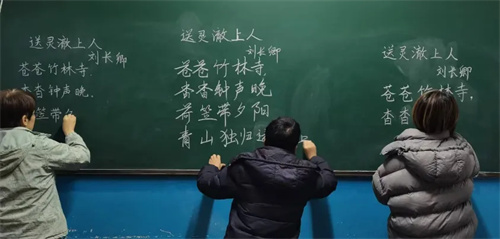 送灵澈上人
刘长卿
苍苍竹林寺,
杳杳钟声晚,
笠带
送灵澈上人
刘长卿
苍苍竹林寺
杳杳钟声晚
荷笠带夕阳
青山独归远
送灵澈上人
刘长卿
苍苍竹林寺,
杳杳